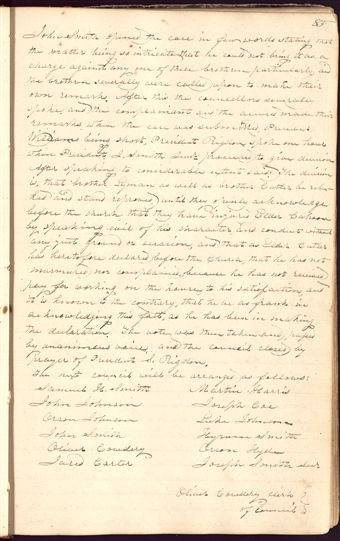 85
John Smith opened the case in few words stating that
the matter being so intricate that he could not bring it as a
charge against any one of these brethren particularly, and
the brethren severally were called upon to make their
own remarks. After this the councellors severally
spoke, and the complainants and the accused made their
remarks when the case was submitted, President
Williams being short, President Rigdon spoke one hour
then President J. Smith Junr proceeded to give decision
After speaking to considerable extent said: The decision
is, that brother Lyman as well as brother Cutler be rebu-
ked and stand reproved, until they openly acknowledge
before the church that they have injured Elder Cahoon
by speaking evil of his character and conduct without
any just ground or occasion, and that as Elder Cutler
has heretofore declared before the Church, that he has not
murmured, nor complained, because he has not received
pay for working on the house to his satisfaction, and
it is known to the contrary, that he be as frank in
acknowledging this fact, as he has been in making
the declaration. The vote was then taken and passed
by unanimous voice, and the council closed by
prayer of President S. Rigdon.
The next council will be arranged as follows:
Samuel H. Smith Martin Harris
John Johnson Joseph Coe
Orson Johnson Luke Johnson
John Smith Hyrum Smith
Oliver Cowdery Orson Hyde
Jared Carter Joseph Smith senr
Oliver Cowdery clerk
of Council